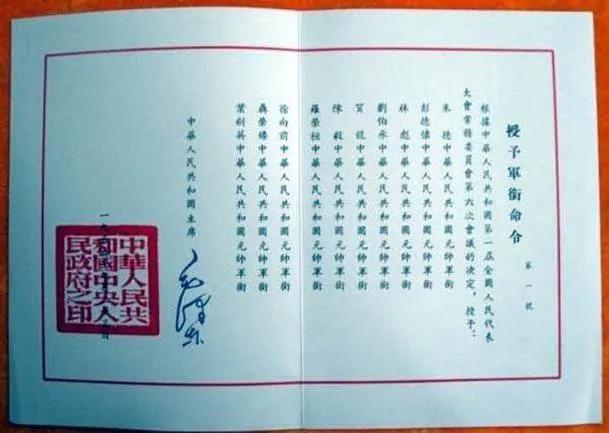 授予軍銜命令
第一號
根據中華人民共和國第一屆全國人民代表
大會常務委員會第六次會議的決定，授予：
朱 德中華人民共和國元帥軍銜
彭德懷中華人民共和國元帥軍銜
林 彪中華人民共和國元帥軍銜
劉伯承中華人民共和國元帥軍銜
賀 龍中華人民共和國元帥軍銜
陳 毅中華人民共和國元帥軍銜
羅榮桓中華人民共和國元帥軍銜
徐向前中華人民共和國元帥軍銜
聶榮臻中華人民共和國元帥軍銜
葉劍英中華人民共和國元帥軍銜
中華人民共和國主席
毛澤東
一九
中華人民共
和國中央人
民政府之印